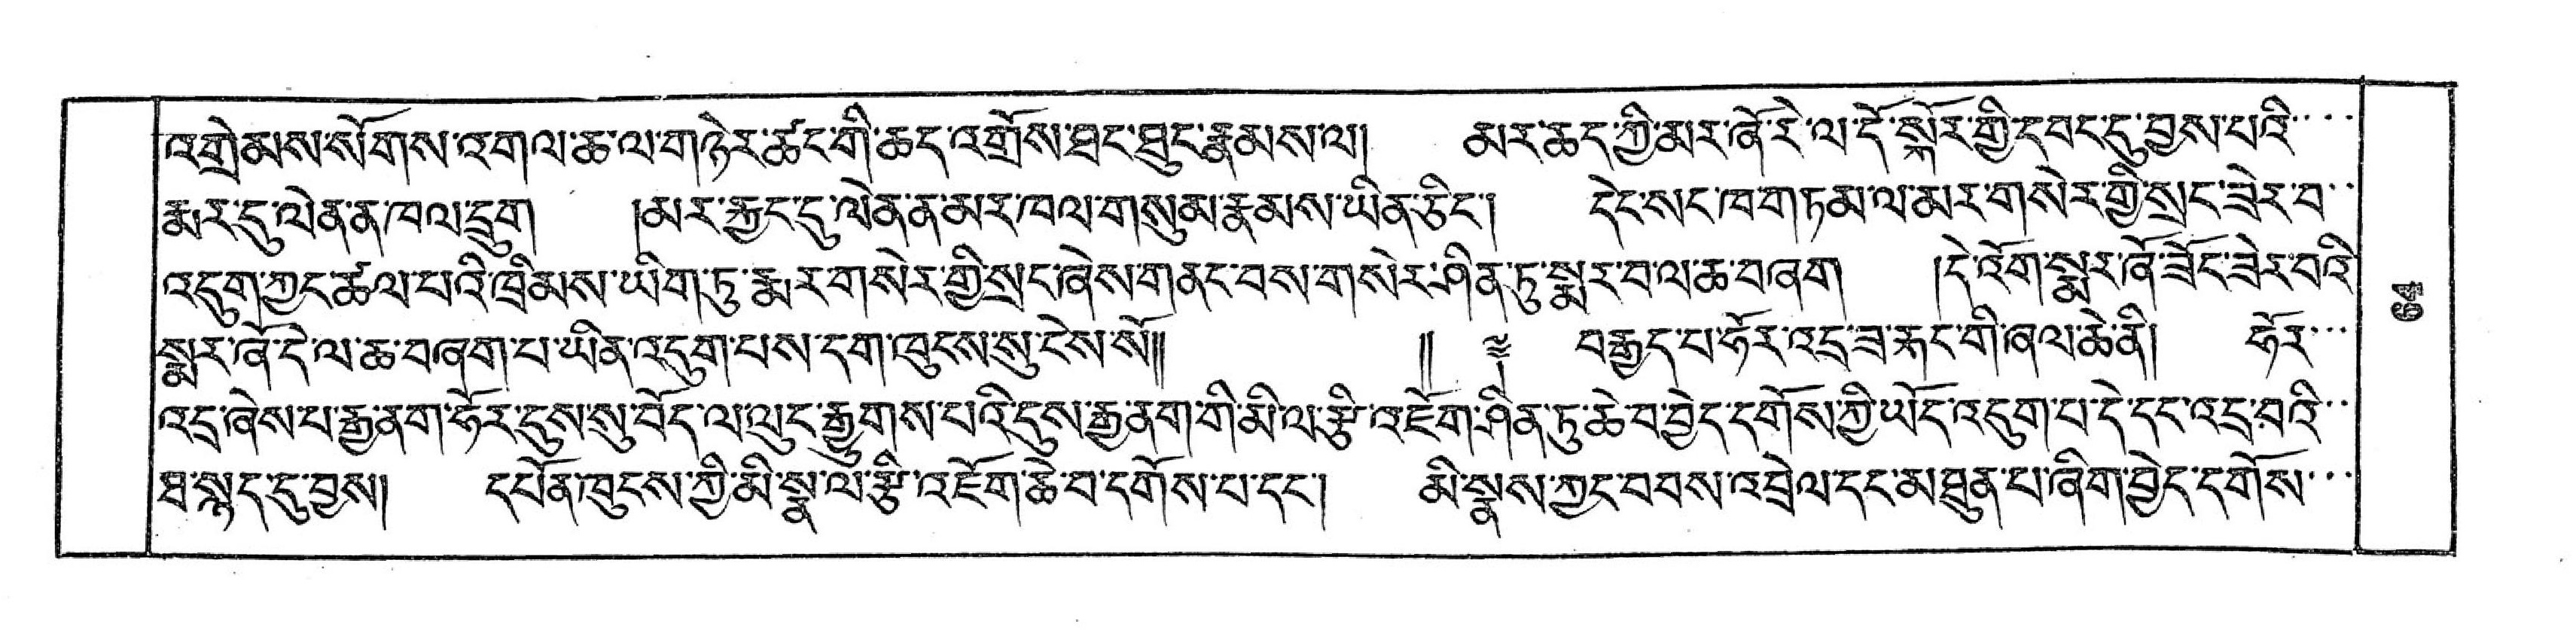 འགྲེམས་སོགས་འགལ་ཆ་ལ་གཉེར་ཚང་གི་ཆད་འགྲོས་ཐང་ཐུང་རྣམས་ལ། མར་ཆད་ཀྱི་མར་ཞོ་རེ་ལ་དོ་སྐོར་གྱི་དབང་དུ་བྱས་པའི་
རྨར་དུ་ལེན་ན་ཁལ་དྲུག །མར་རྐྱང་དུ་ལེན་ན་མར་ཁལ་གསུམ་རྣམས་ཡིན་ཅིང་། དེང་སང་ཁ་གཏམ་ལ་མར་གསེར་གྱི་སྲང་ཟེར་བ་
འདུག་ཀྱང་ཚལ་པའི་ཁྲིམས་ཡིག་ཏུ་རྨར་གསེར་གྱི་སྲང་ཞེས་གནང་བས་གསེར་ཤིན་ཏུ་སྨར་བ་ལ་ཆ་བཞག །དེ་འོག་སྨར་ཞོ་ཟོང་ཟེར་བའི་
སྨར་ཞོ་དེ་ལ་ཆ་བཞག་པ་ཡིན་འདུག་པས་དག་ཁུངས་སུ་ངེས་སོ།། །། ༈ བརྒྱད་པ་ཧོར་འདྲ་ཟ་རྐང་གི་ཞལ་ཆེ་ནི། ཧོར་
འདྲ་ཞེས་པ་རྒྱ་ནག་ཧོར་དུས་སུ་བོད་ལ་ལུང་རྒྱུགས་པའི་དུས་རྒྱ་ནག་གི་མི་ལ་རྩི་འཇོག་ཤིན་ཏུ་ཆེ་བ་བྱེད་དགོས་ཀྱི་ཡོད་འདུག་པ་དེ་དང་འདྲ་བའི་
ཐ་སྙད་དུ་བྱས། དཔོན་ཁུངས་ཀྱི་མི་སྣ་ལ་རྩི་འཇོག་ཆེ་བ་དགོས་པ་དང་། མི་སྣས་ཀྱང་བབས་འབྲེལ་དང་མཐུན་པ་ཞིག་བྱེད་དགོས་